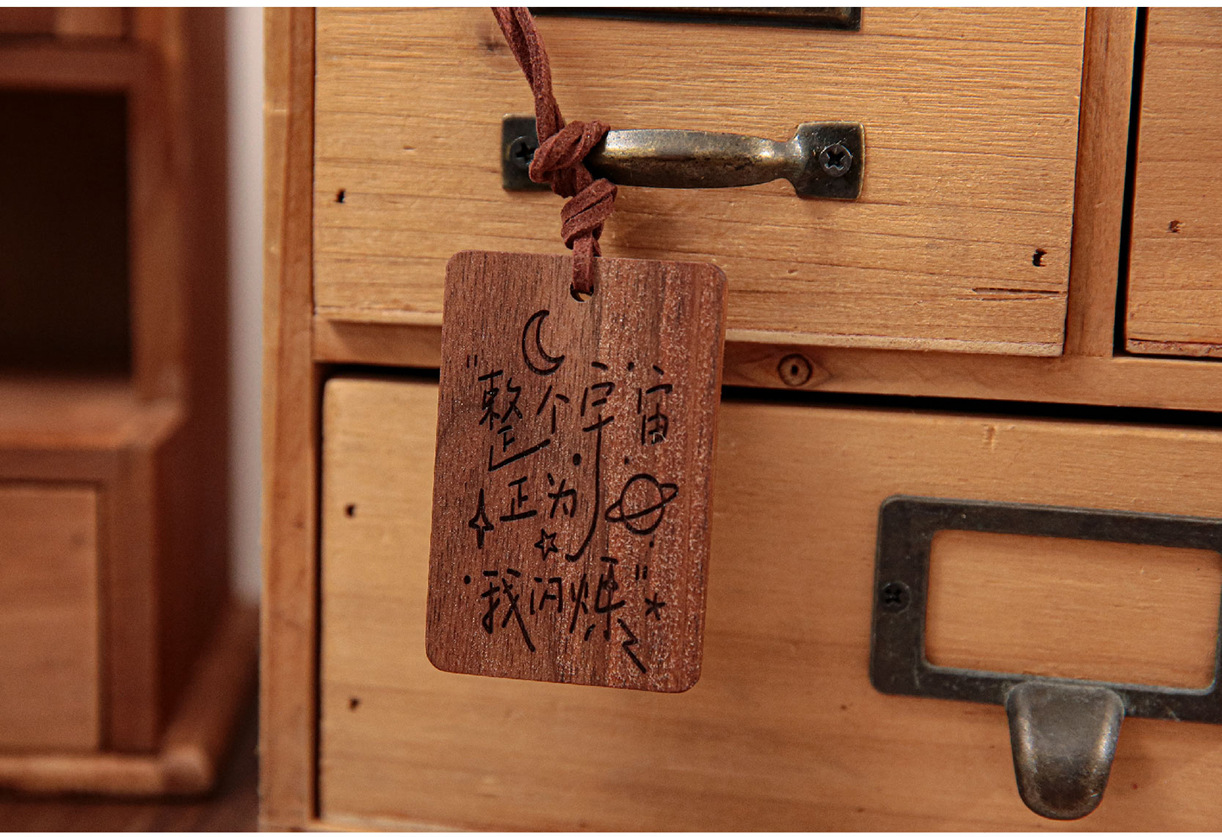 "整个宇宙
正为
我闪烁"